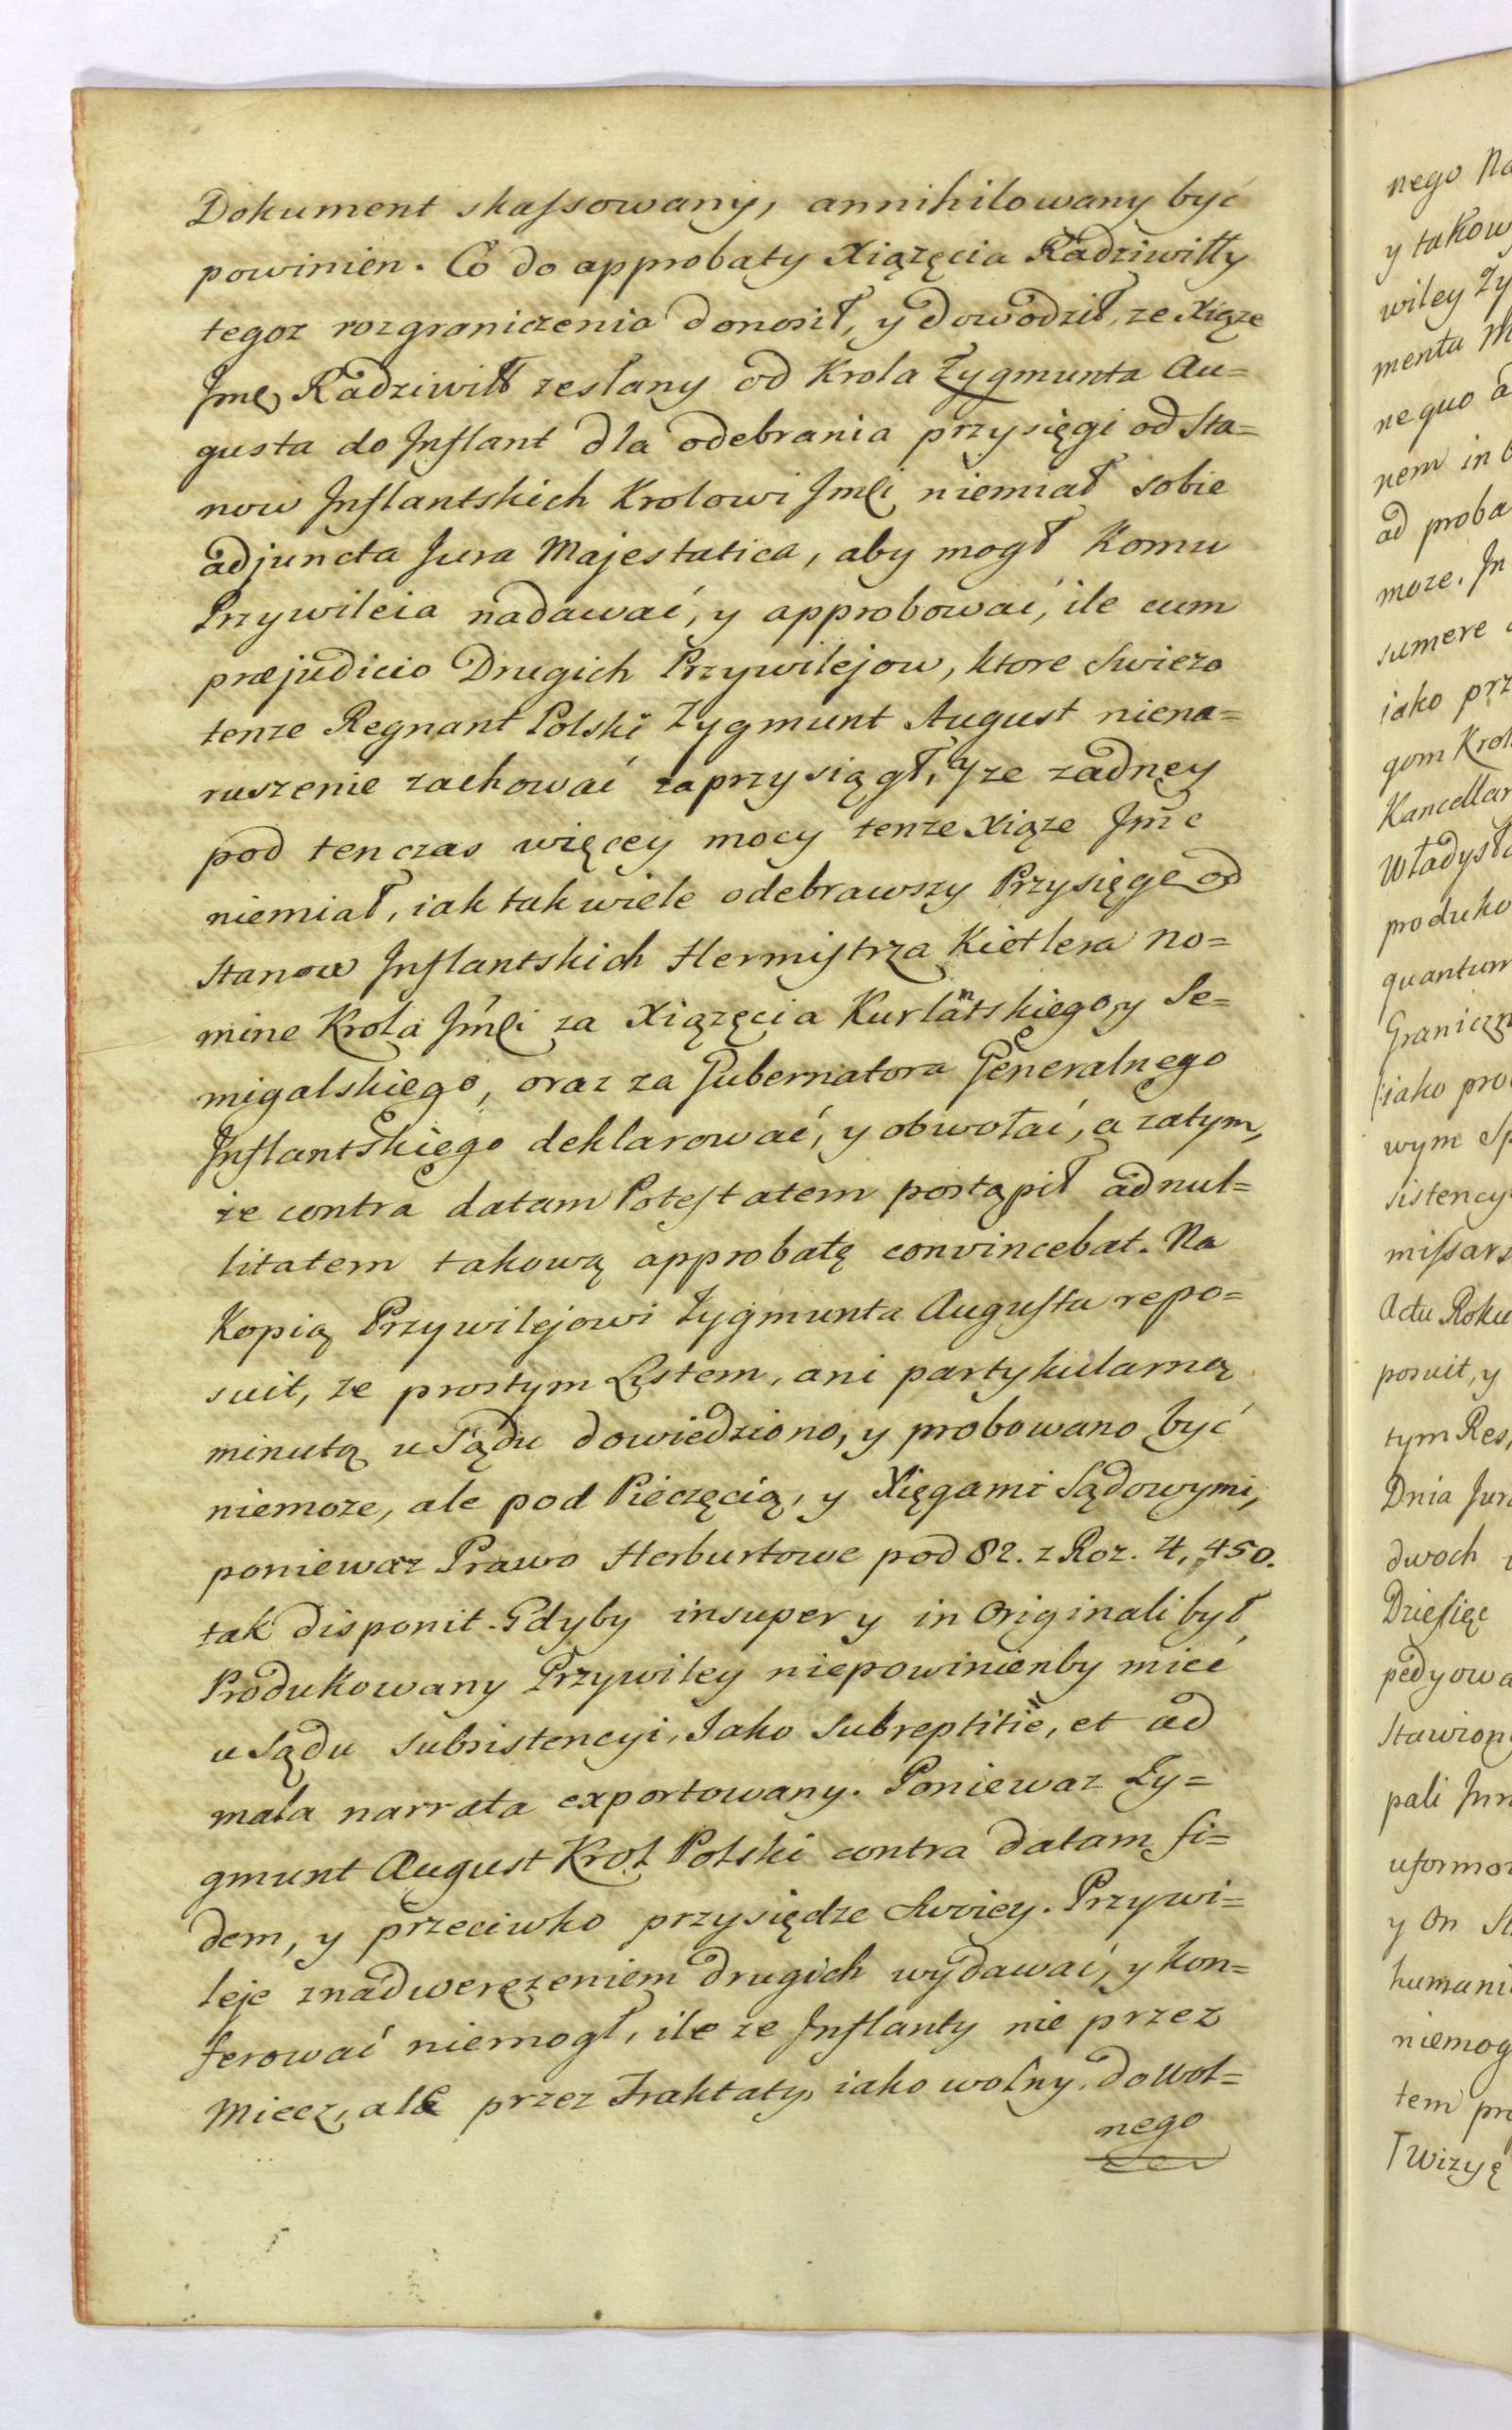 Dokument skassowany, annihilowany być
powinien. Co do approbaty Xiązęcia Radziwiłły
tegoz rozgraniczenia donosił, y dowodził, ze Xiąze
Jmć Radziwiłł zesłany od Krola Zygmunta Au=
gusta do Inflant dla odebrania przysięgi od Sta=
now Inflantskich Krolowi Jmći niemiał sobie
adjuncta Jura Majestatica, aby mogł Komu
Przywileia nadawać, y approbować, ile cum
præjudicio Drugich Przywilejow, ktore Swiezo
tenze Regnant Polski Zygmunt August niena=
ruszenie zachować zaprzysiągł, y ze zadney
pod tenczas więcey mocy tenze Xiąze Jmc
niemiał, iak tak wiele odebrawszy Przysięgę od
Stanow Inflantskich Hermistrza Kietlera no=
mine Krola Jmći za Xiązęcia Kurlantskiego, y Se=
migalskiego, oraz za Gubernatora Generalnego
Inflantskiego deklarować, y obwołać, a zatym,
ze contra datam Potestatem postąpił ad nul=
litatem takową approbatę convincebat. Na
Kopią Przywilejowi Zygmunta Augusta repo=
suit, ze prostym Listem, ani partykularną
minutą u Sądu dowiedziono, y probowano być
niemoze, ale pod Pieczęcią, y Xięgami Sądowymi,
poniewaz Prawo Herburtowe pod 82. z Roz. 4, 450.
tak disponit. Gdyby insuper y in Originali był
Produkowany Przywiley niepowinienby mieć
u Sądu subsistencyi, Jako Subreptitie, et ad
mala narrata exportowany. Poniewaz Zy=
gmunt August Krol Polski contra datam fi=
dem, y przeciwko przysiędze Swoiey. Przywi=
leje znadwerezeniem drugich wydawać, y kon=
ferować niemogł, ile ze Inflanty nie przez
Miecz, ale przez Traktaty, iako wolny do wol=
nego
nego Na
y takow
wiley Zy
menta M
ne quo a
nem in
ad proba
moze. In
sumere
iako prz
gom Krol
Kancellar
Władysł
produko
quantum
Graniczn
iako pro
wym Sp
sistency
missars
Actu Roku
posuit, y
tym Res
Dnia Jur
dwoch
Dziesięc
pedyowa
Stawion
pali Jm
uformo
y On St
humani
niemog
tem pr
Twizyę